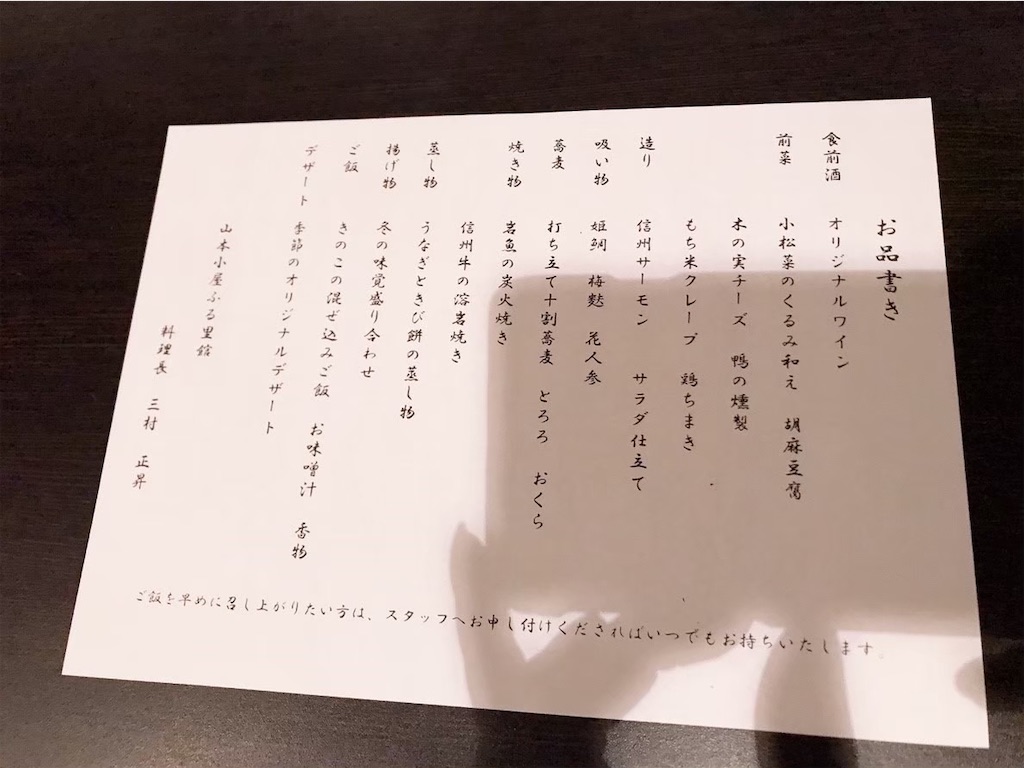 お品書き
食前酒 オリジナルワイン
前菜 小松菜のくるみ和え 胡麻豆腐
木の実チーズ 鴨の燻製
もち米クレープ 鶏ちまき
造り 信州サーモン サラダ仕立て
吸い物 姫鯛 梅麩 花人参
蕎麦 打ち立て十割蕎麦 とろろ おくら
焼き物 岩魚の炭火焼き
信州牛の溶岩焼き
蒸し物 うなぎときび餅の蒸し物
揚げ物 冬の味覚盛り合わせ
ご飯 きのこの混ぜ込みご飯 お味噌汁 香物
デザート 季節のオリジナルデザート
山本小屋ふる里館
料理長 三村 正昇
ご飯を早めに召し上がりたい方は、スタッフへお申し付けくださればいつでもお持ちいたします。